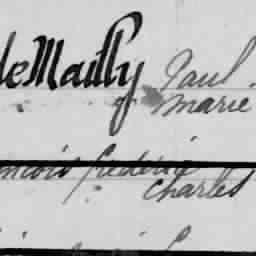 de Mailly Paul
Marie
ncois frederic
Charles